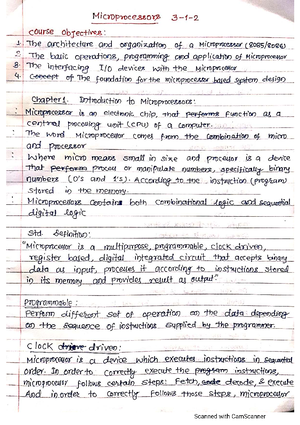 Microprocessors 3-1-2
Course Objectives:
1. The architecture and organization of a Microprocessor (8085/8086)
2. The basic operations, programming and application of Microprocessor
3. The interfacing I/O devices with the Microprocessor
4. Concept of The foundation for the microprocessor based system design
Chapter 1. Introduction to Microprocessors:
Microprocessor is an electronic chip, that performs function as a
central processing unit (CPU) of a computer.
The word Microprocessor comes from the combination of micro
and processor
Where micro means small in size and processor is a device
that perform process or manipulate numbers, specifically binary
numbers (0's and 1's). According to the instruction (program)
stored in the memory.
Microprocessors contains both Combinational logic and sequential
digital logic
Std Definition:
"Microprocessor is a multipurpose, programmable, clock driven,
register based, digital integrated circuit that accepts binary
data as input, processes it according to instructions stored
in its memory and provides result as output."
Programmable:
Perform different set of operation on the data depending
on the sequence of instructions supplied by the programmer.
Clock driven:
Microprocessor is a device which executes instructions in sequential
order. In order to correctly execute the program instructions,
microprocessor follows certain steps: Fetch, decode, & execute
And in order to correctly follows those steps, microprocessor
Scanned with CamScanner